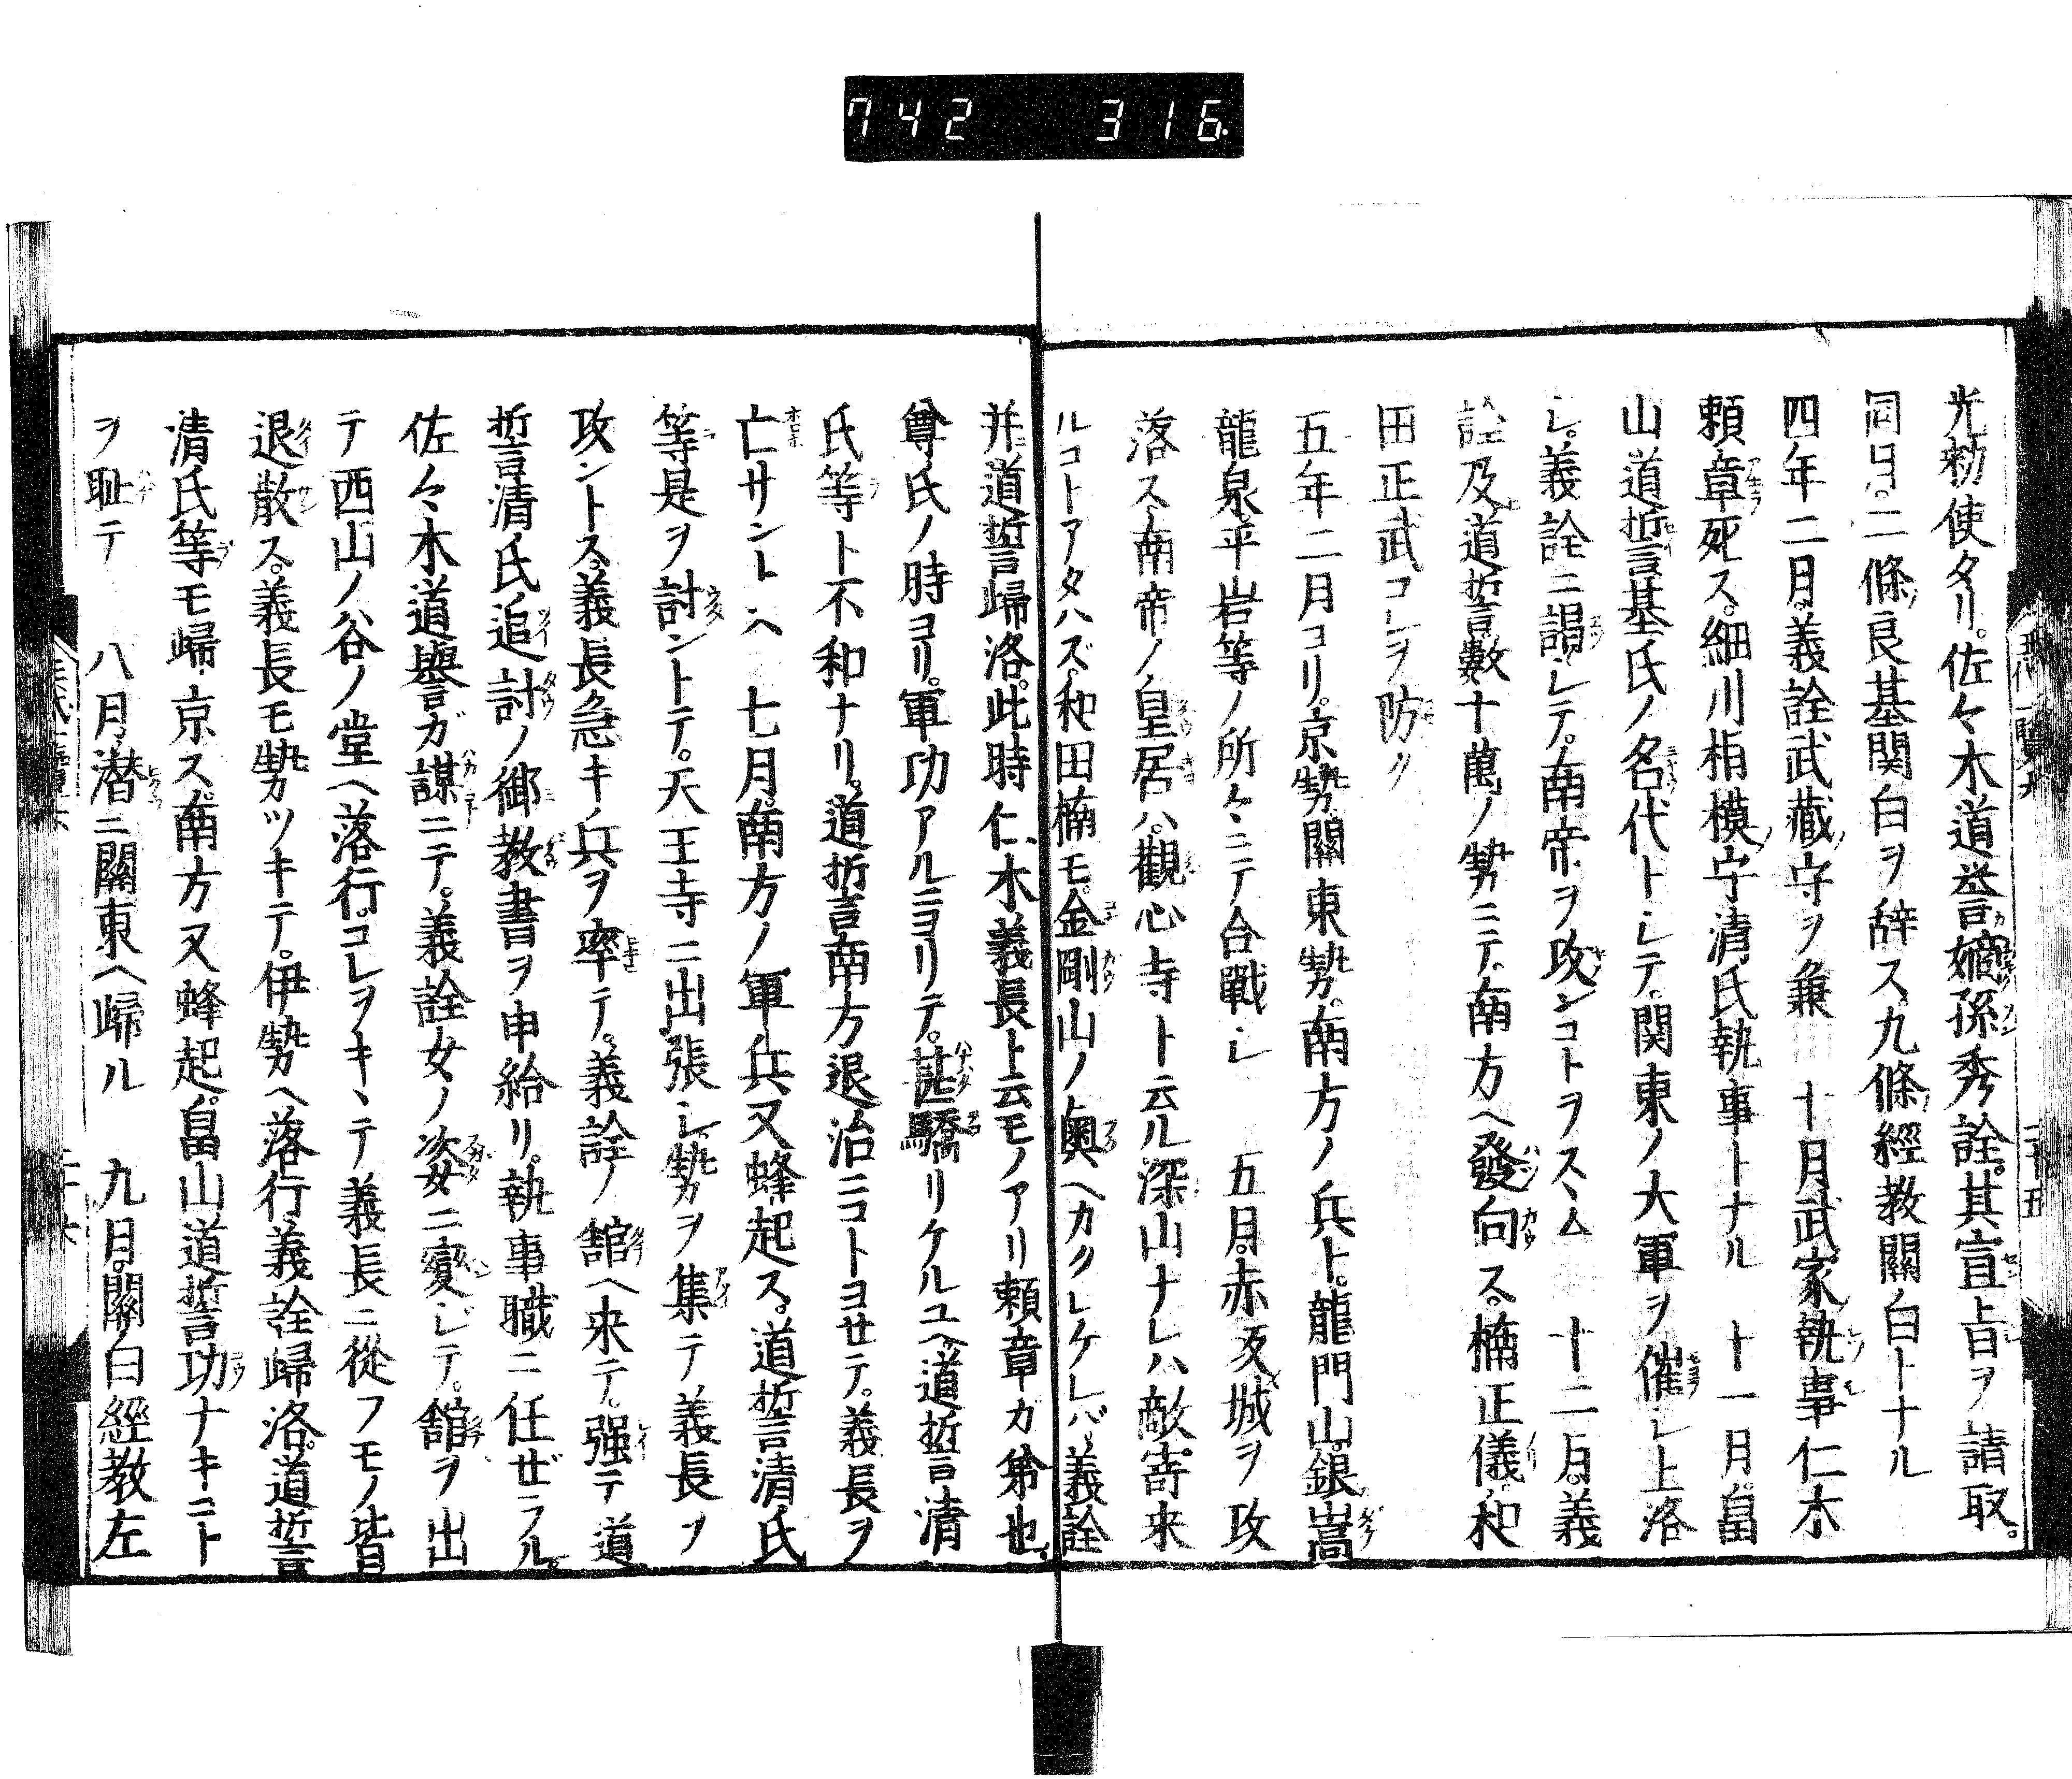 742 316
光勅使タリ。佐々木道誉嫡孫秀詮。其宣旨ヲ請取。
同日。二條良基関白ヲ辞ス。九條經教關白トナル
四年二月。義詮武藏守ヲ兼 十月武家執事仁木
頼章死ス。細川相模守清氏執事トナル 十一月。畠
山道誓基氏ノ名代トシテ。関東ノ大軍ヲ催シ上洛
シ。義詮ニ謁シテ。南帝ヲ攻ンコトヲスヽム 十二月。義
詮及道誓数十萬ノ勢ニテ。南方ヘ發向ス。楠正儀。和
田正武コレヲ防ク
五年二月ヨリ。京勢關東勢。南方ノ兵ト。龍門山。銀嵩
龍泉。平岩等ノ所々ニテ合戰シ 五月。赤坂城ヲ攻
落ス。南帝ノ皇居ハ。觀心寺ト云ル深山ナレハ敵寄来
ルコトアタハズ。和田楠モ。金剛山ノ奥ヘカクレケレバ。義詮
并道誓歸洛。此時仁木義長ト云モノアリ頼章カ弟也。
尊氏ノ時ヨリ。軍功アルニヨリテ。甚驕リケルユヘ。道誓清
氏等ト不和ナリ。道誓南方退治ニコトヨセテ。義長ヲ
亡サントヘ 七月。南方ノ軍兵又蜂起ス。道誓清氏
等是ヲ討ントテ。天王寺ニ出張シ。勢ヲ集テ義長ヲ
攻ントス。義長急キ兵ヲ率テ。義詮ノ舘ヘ来テ。强テ道
誓清氏追討ノ御教書ヲ申給リ。執事職ニ任ゼラル。
佐々木道譽ガ謀ニテ。義詮女ノ姿ニ變ジテ。舘ヲ出
テ西山ノ谷ノ堂ヘ落行。コレヲキヽテ義長ニ從フモノ皆
退散ス。義長モ勢ツキテ。伊勢ヘ落行義詮歸洛。道誓
清氏等モ歸京ス。南方又蜂起。畠山道誓功ナキコト
ヲ耻テ 八月潜ニ關東ヘ歸ル 九月。關白經教左